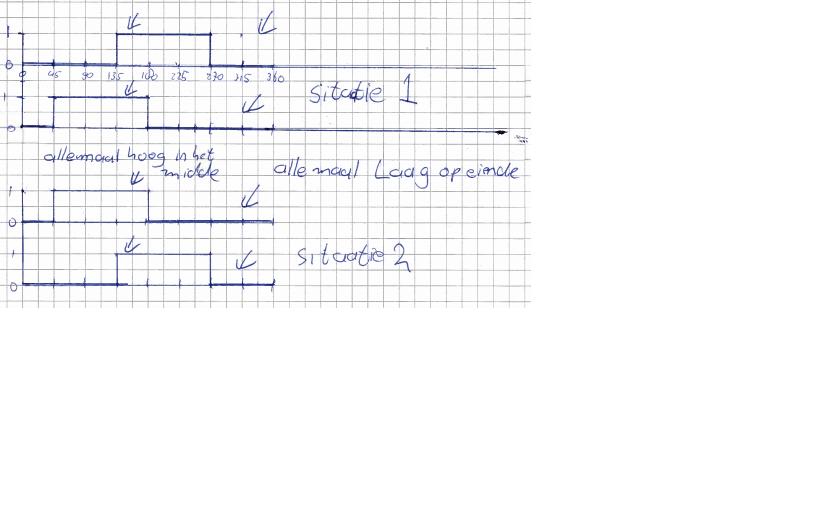 1
0
0 45 90 135 180 225 270 315 360
sitatie 1
1
0
allemaal hoog in het
midde
allemaal Laag op einde
1
0
sitaatie 2
1
0